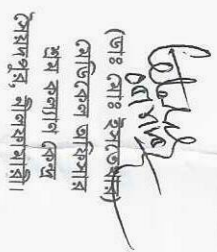 (ডাঃ মোঃ ইসতেয়াক)
মেডিকেল অফিসার
শ্রম কল্যাণ কেন্দ্র
সৈয়দপুর, নীলফামারী।